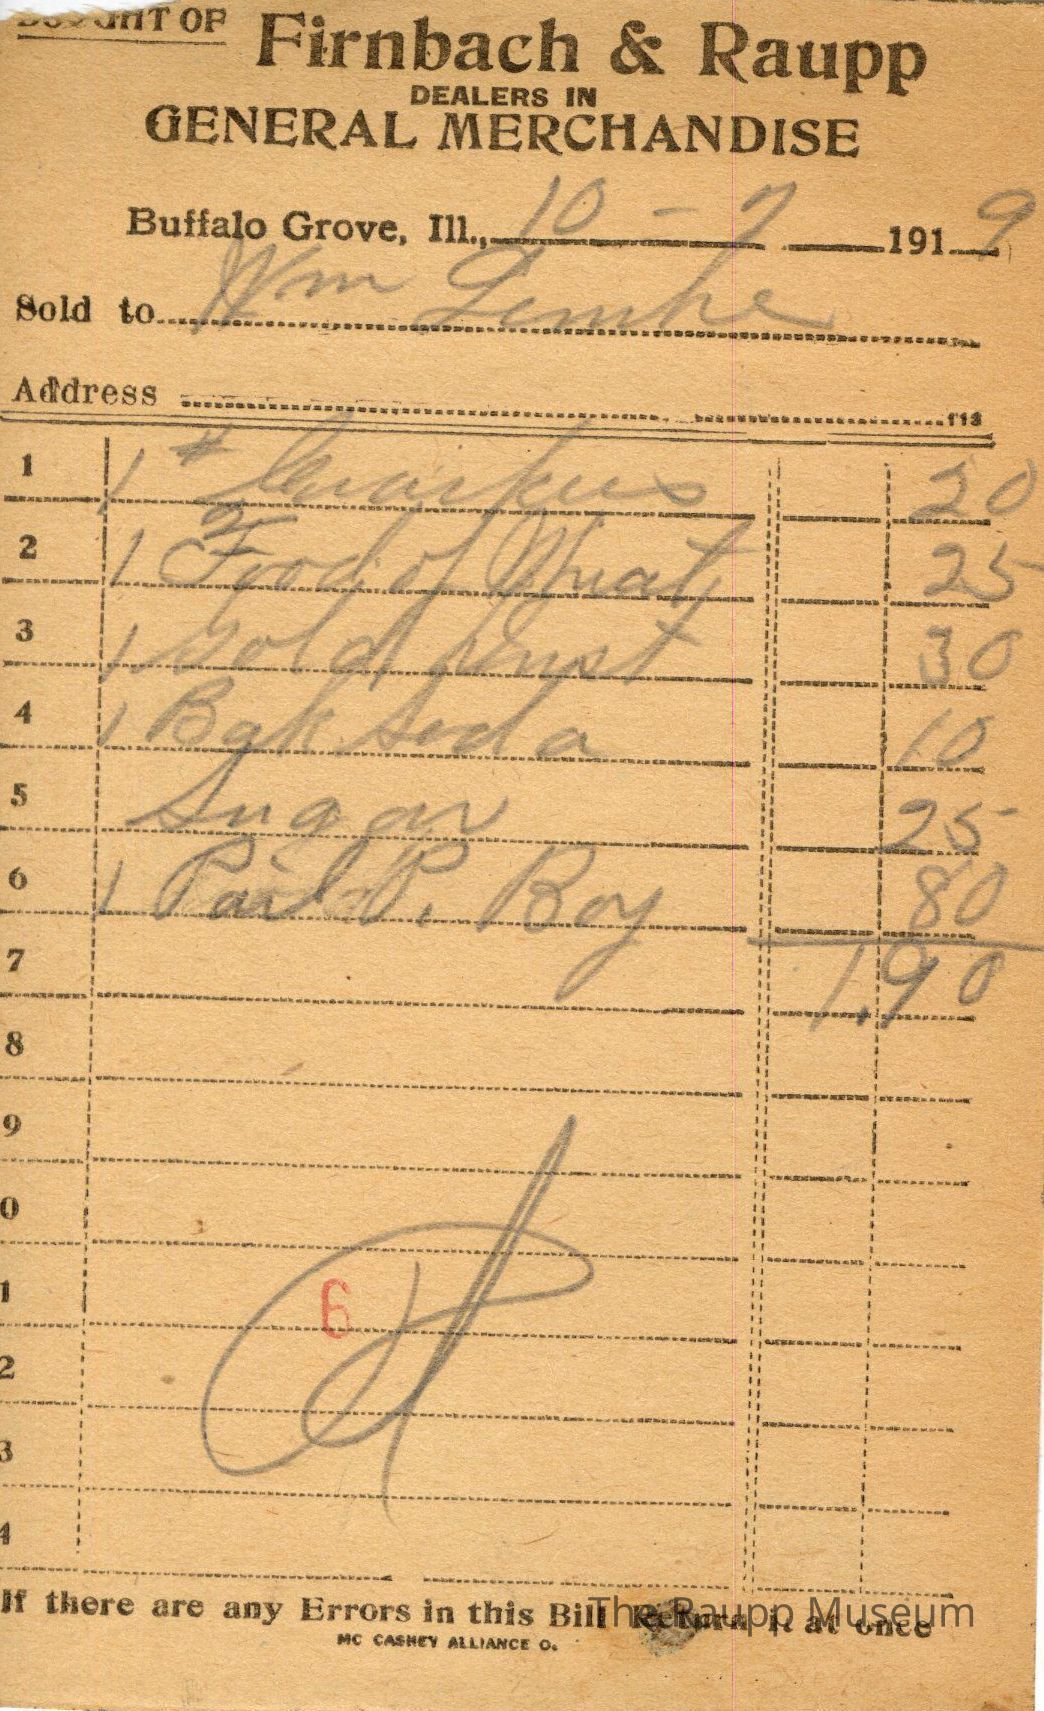 BOUGHT OF Firnbach & Raupp
DEALERS IN
GENERAL MERCHANDISE
Buffalo Grove, Ill., 10 - 7 1919
Sold to Wm Lemke
Address
113
1 1 # 20
2 1 Food of Wheat 25
3 1 Gold Dust 30
4 1 Bak Soda 10
5 Sugar 25
6 1 Pail P. Boy 80
7 1.90
8
9
0
1 6
2
3
4
If there are any Errors in this Bill Return it at once
MC CASKEY ALLIANCE O.
The Raupp Museum